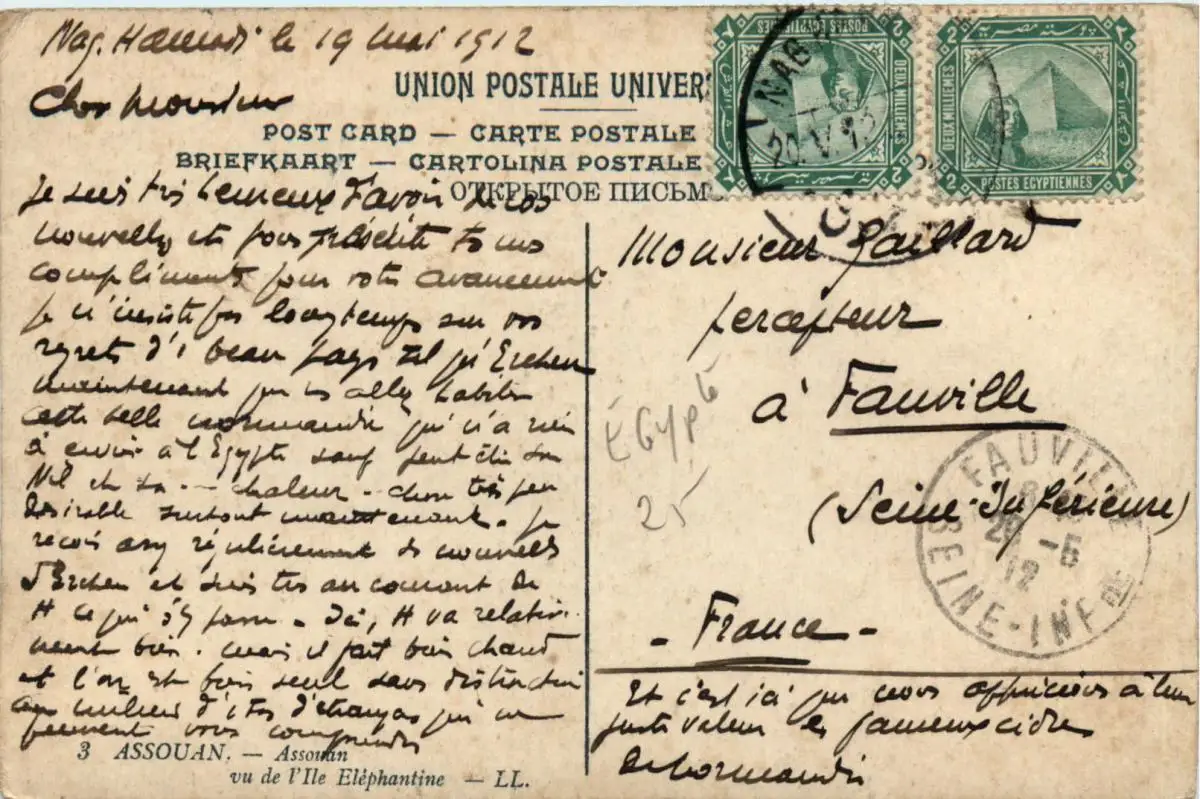 Nag. Hamadi le 19 mai 1912
Cher Monsieur
UNION POSTALE UNIVERS
POST CARD — CARTE POSTALE
BRIEFKAART — CARTOLINA POSTALE
ОТКРЫТОЕ ПИСЬМ
Je suis très heureux d'avoir de vos
nouvelles et vous présente tous mes
compliments pour votre avancement
Je n'insiste pas longtemps sur vos
regrets d' beau pays tel qu'Ercheu
maintenant que vs allez habiter
cette belle Normandie qui n'a rien
à envier à l'Egypte sauf peut être son
Nil et sa --- chaleur - chose très peu
désirable surtout maintenant. Je
reçois assez régulièrement des nouvelles
d'Ercheu et suis très au courant de
tt ce qui s'y passe - Ici, tt va relati-
vement bien. mais il fait bien chaud
et l'on est bien seul sans distraction
au milieu d'êtres étranges qui ne
peuvent vous comprendre
3 ASSOUAN. — Assouan
vu de l'Ile Eléphantine — LL.
2 POSTES EGYPTIENNES 2
DEUX MILLIEMES
NAG
20.V.12
بوسته مصرية
2 2
DEUX MILLIEMES
2 POSTES EGYPTIENNES 2
Monsieur Gaillard
percepteur
à Fauville
(Seine-Inférieure)
- France -
EGypte
25
FAUVILLE
26 -5
12
SEINE-INFRE
Et c'est ici que nous apprécions à leur
juste valeur les fameux cidres
de Normandie